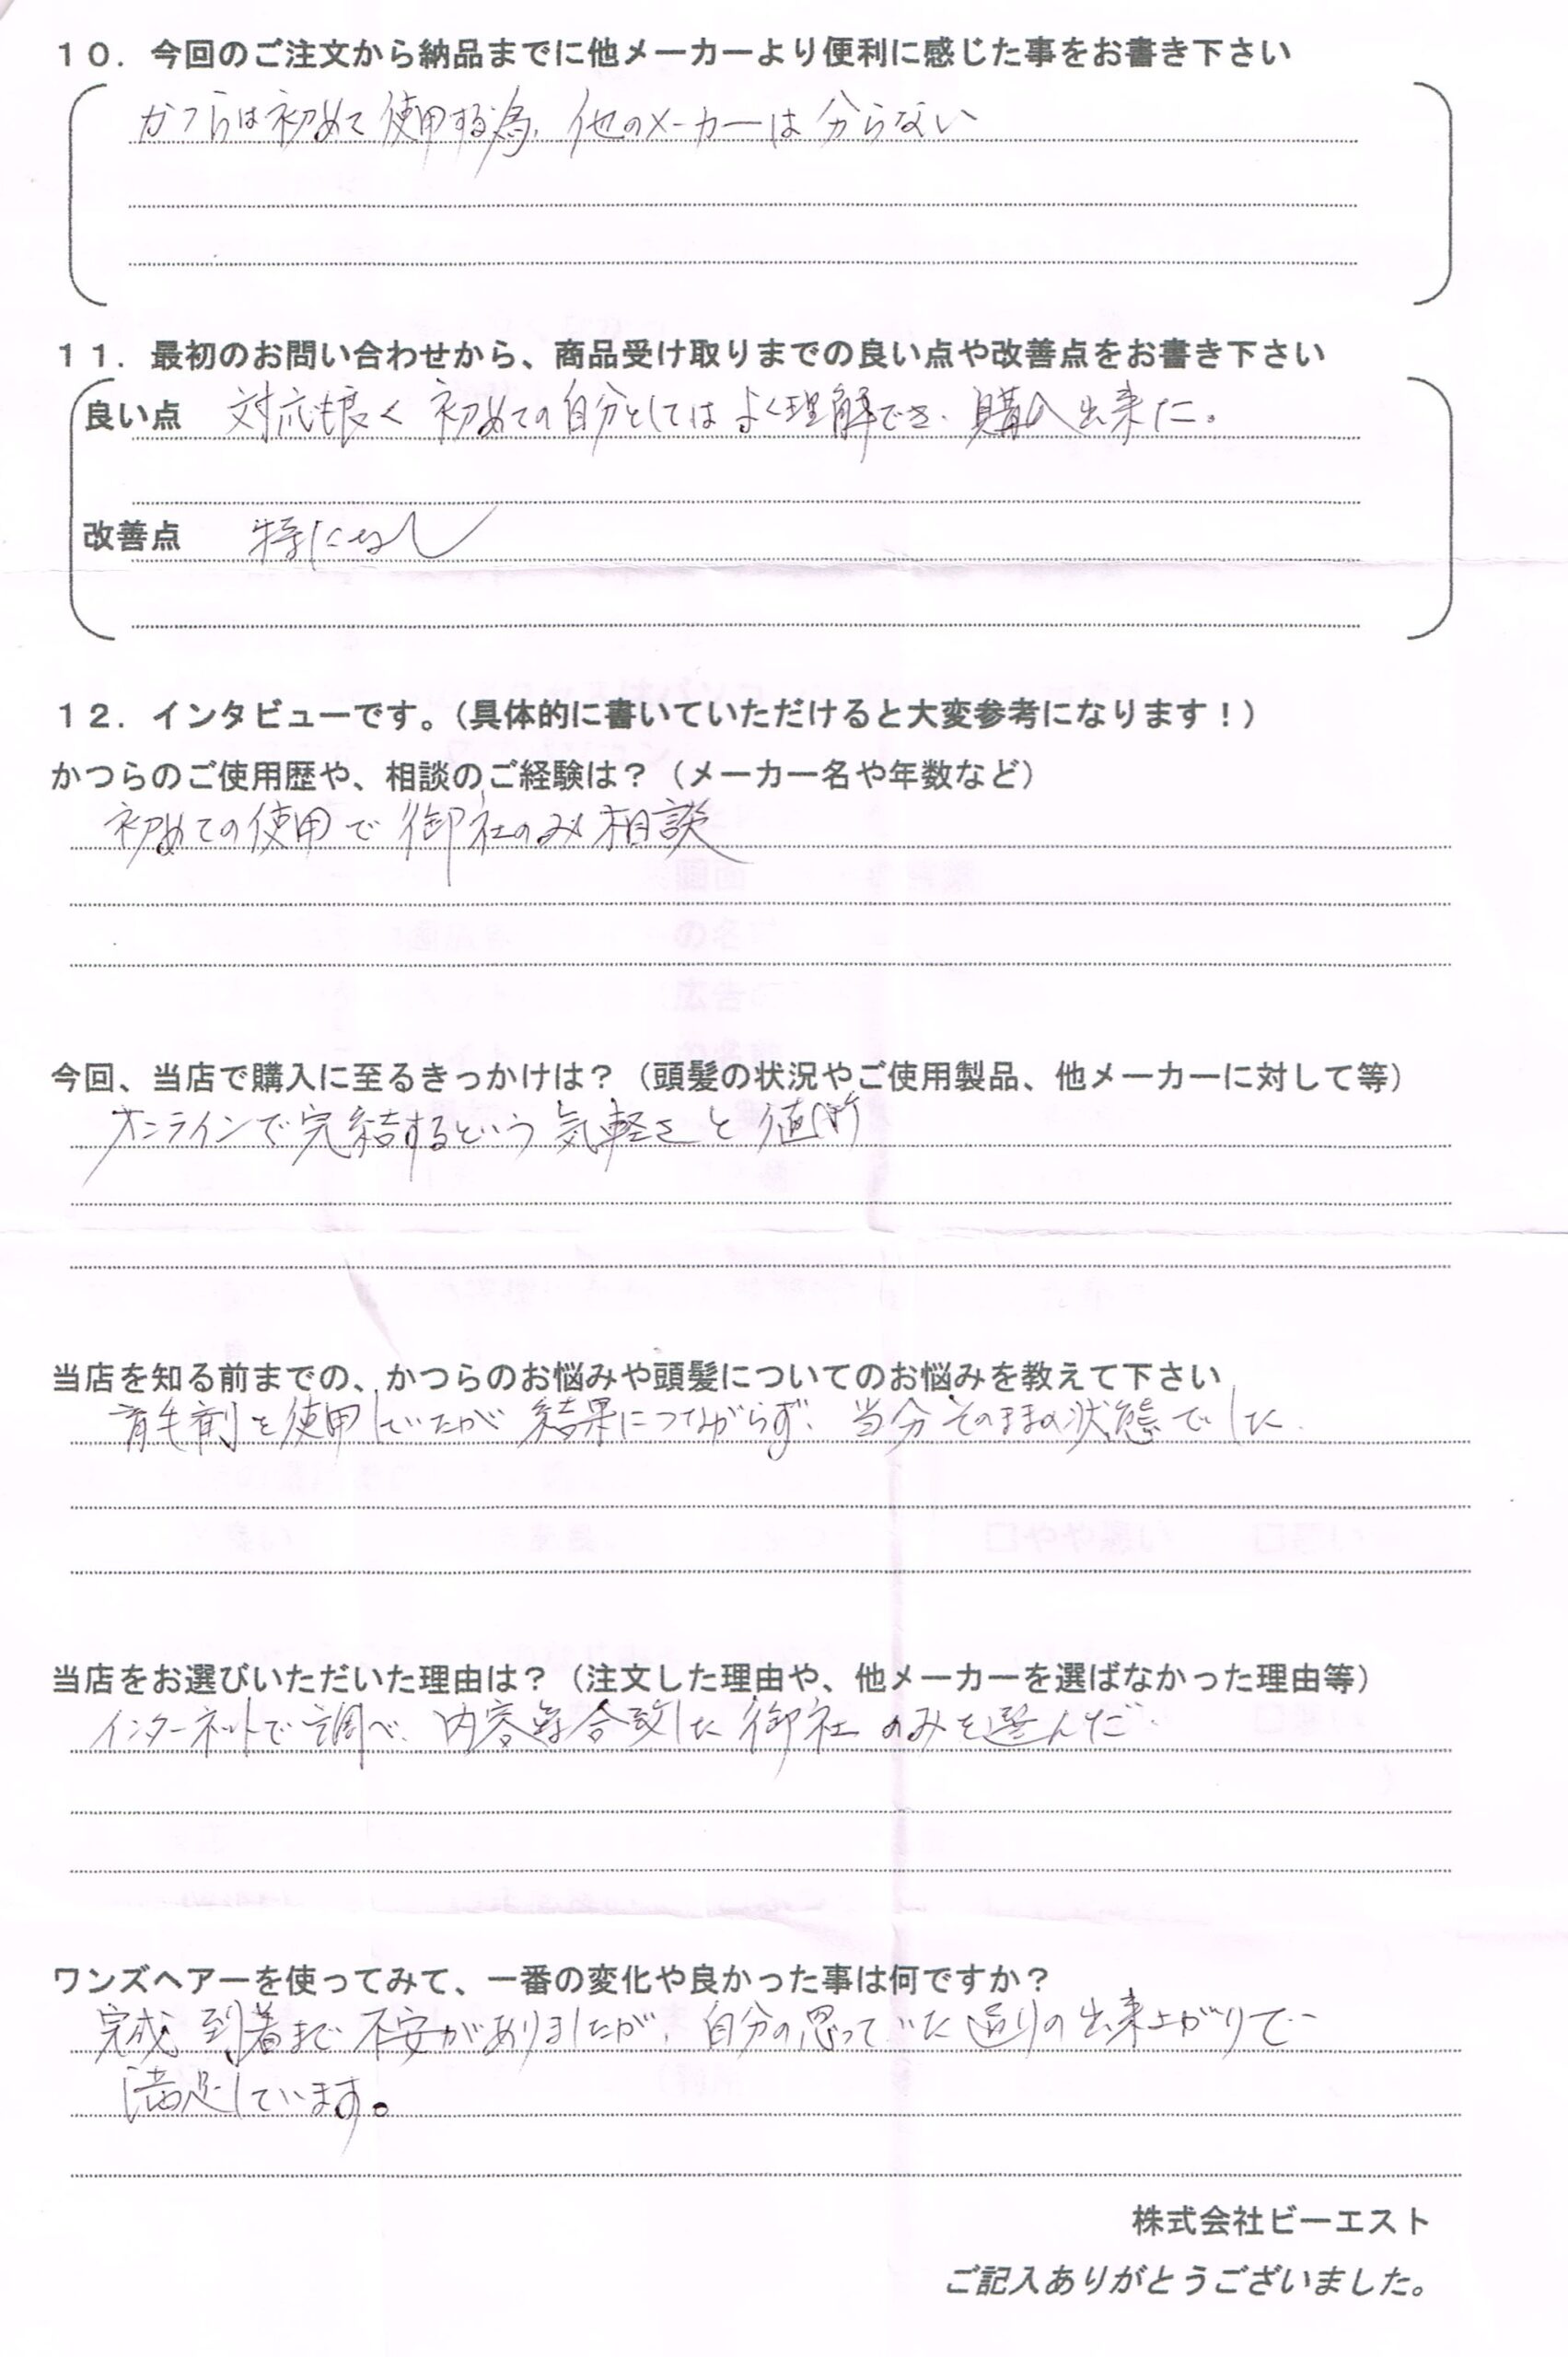 １０．今回のご注文から納品までに他メーカーより便利に感じた事をお書き下さい
かつらは初めて使用する為、他のメーカーは分らない
１１．最初のお問い合わせから、商品受け取りまでの良い点や改善点をお書き下さい
良い点 対応も良く初めての自分としてはよく理解でき、購入出来た。
改善点 特になし
１２．インタビューです。（具体的に書いていただけると大変参考になります！）
かつらのご使用歴や、相談のご経験は？（メーカー名や年数など）
初めての使用で御社のみ相談
今回、当店で購入に至るきっかけは？（頭髪の状況やご使用製品、他メーカーに対して等）
オンラインで完結するという気軽さと値段
当店を知る前までの、かつらのお悩みや頭髪についてのお悩みを教えて下さい
育毛剤を使用していたが結果につながらず、当分そのままの状態でした。
当店をお選びいただいた理由は？（注文した理由や、他メーカーを選ばなかった理由等）
インターネットで調べ、内容等合致した御社のみを選んだ。
ワンズヘアーを使ってみて、一番の変化や良かった事は何ですか？
完成到着まで不安がありましたが、自分の思っていた通りの出来上がりで
満足しています。
株式会社ビーエスト
ご記入ありがとうございました。